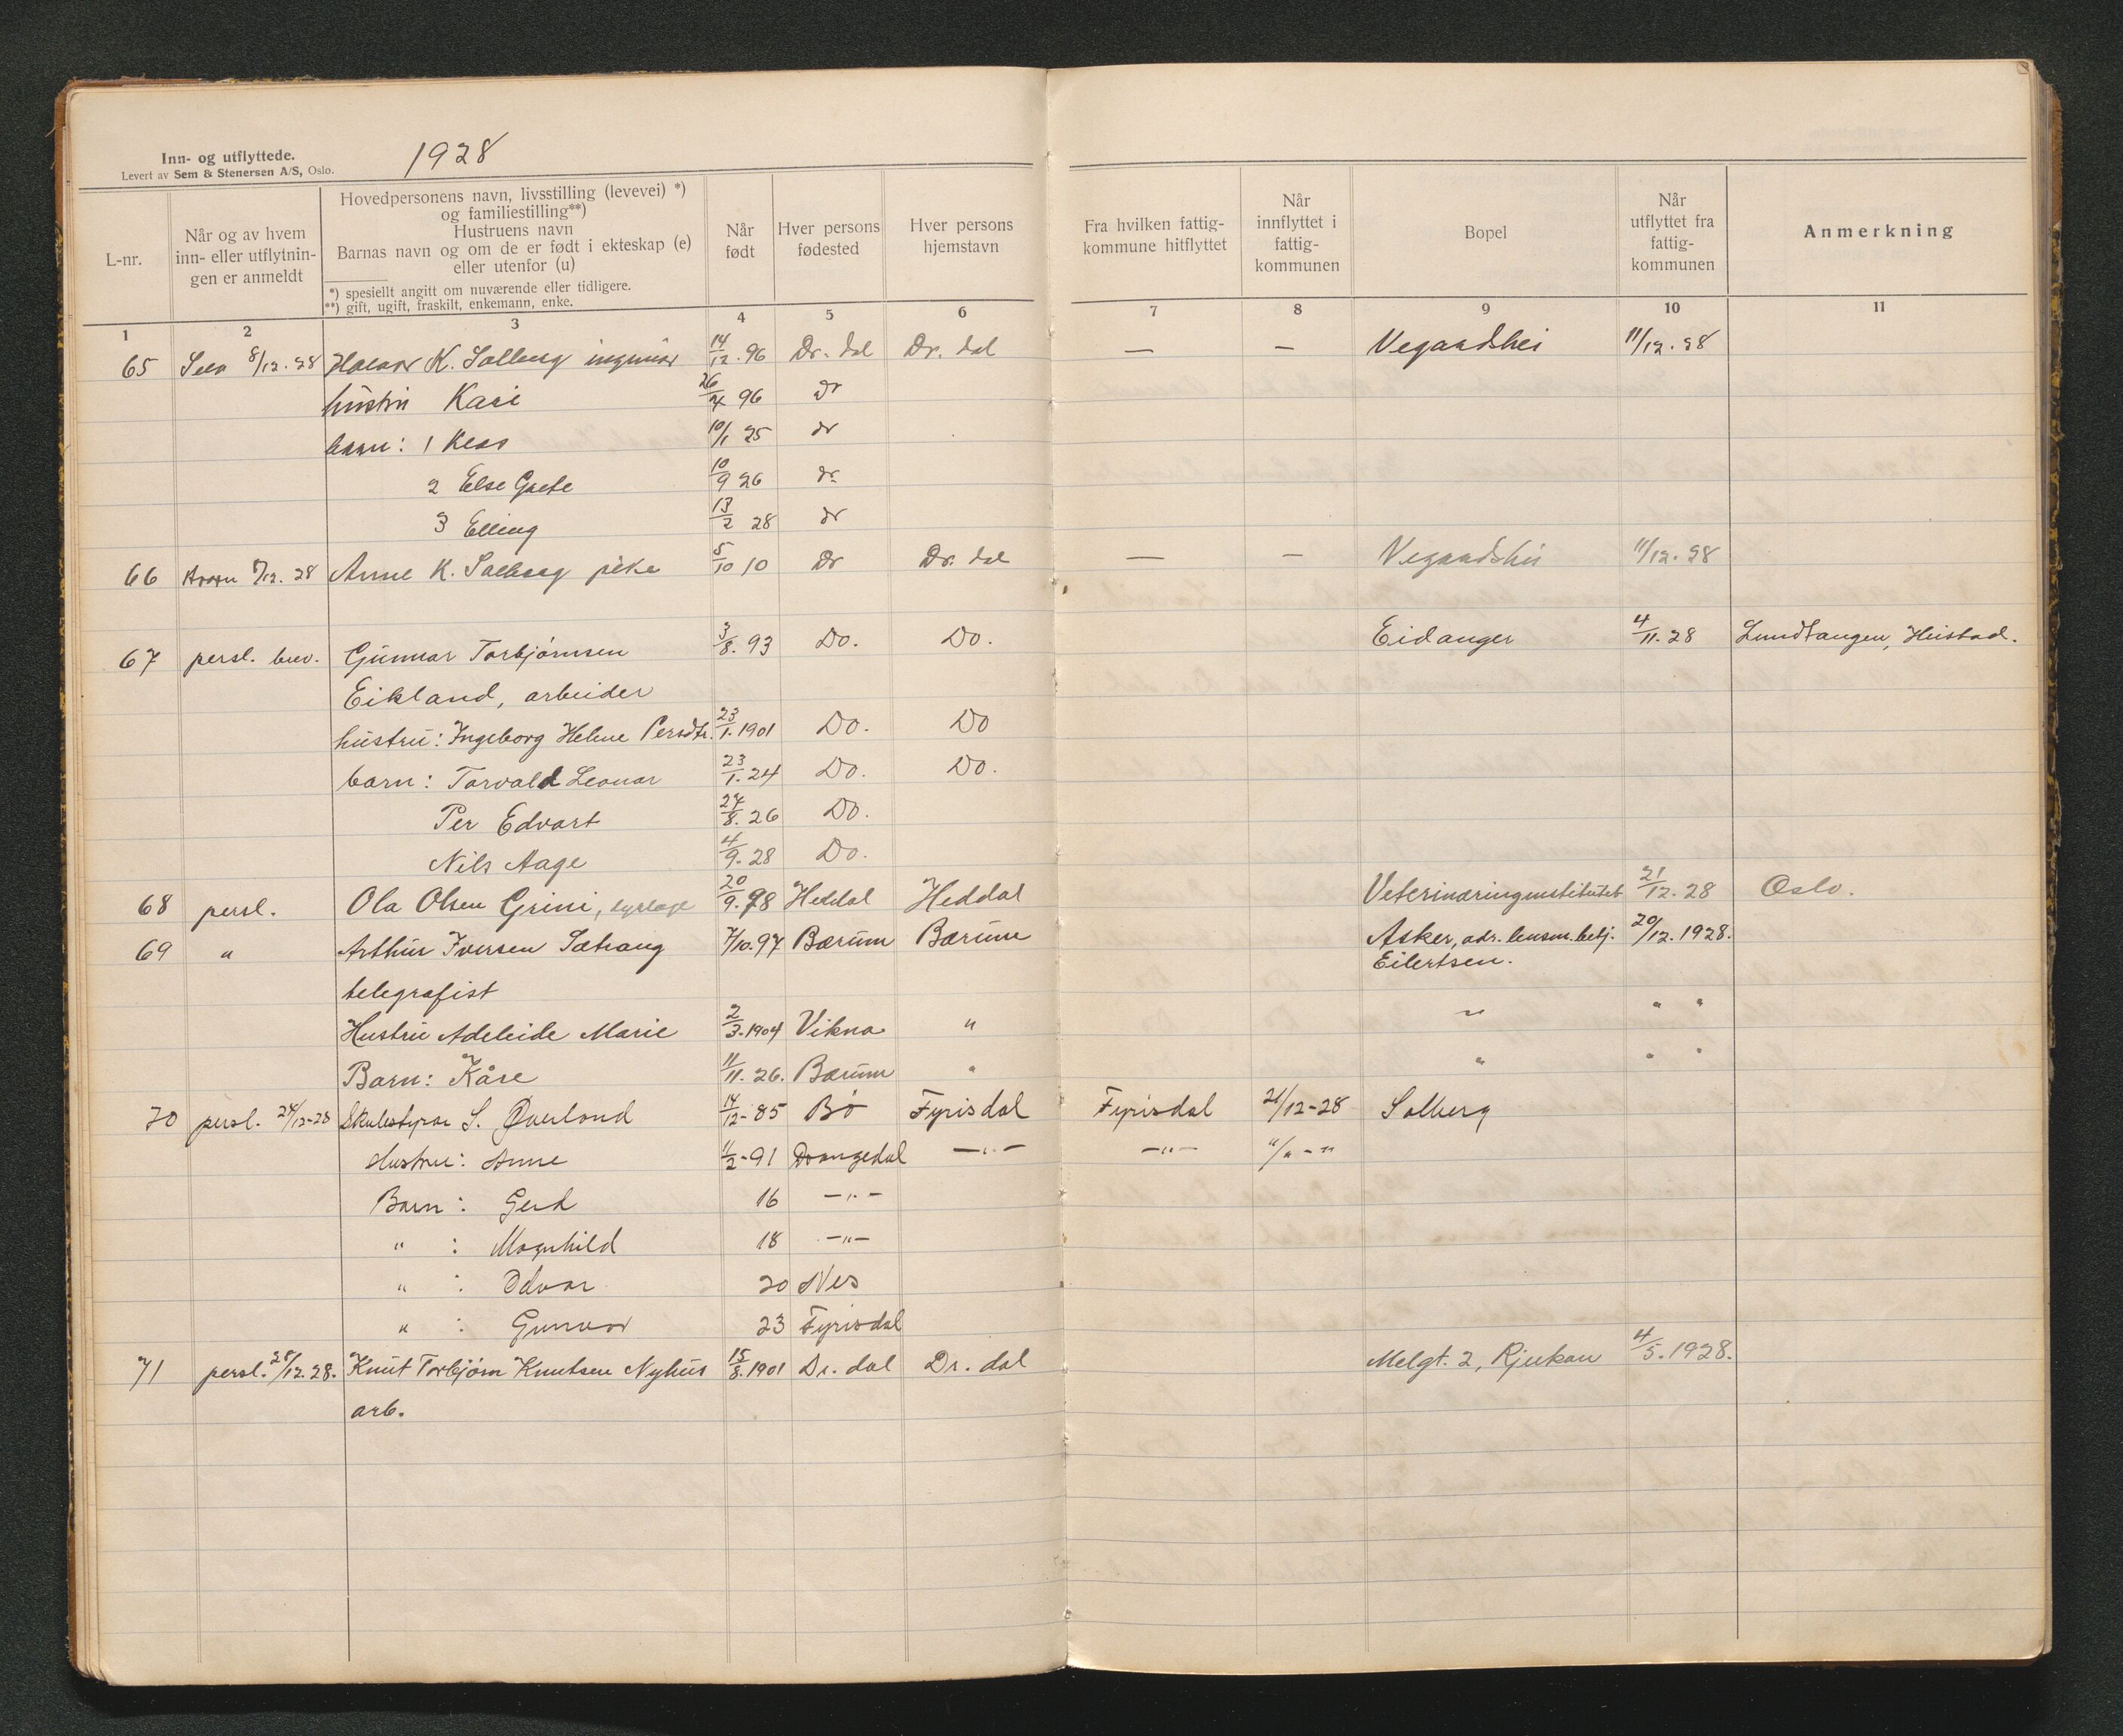 Inn- og utflyttede.
Levert av Sem & Stenersen A/S, Oslo.
1928
L-nr.
Når og av hvem inn- eller utflytnin- gen er anmeldt
Hovedpersonens navn, livsstilling (levevei) *)
og familiestilling**)
Hustruens navn
Barnas navn og om de er født i ekteskap (e)
eller utenfor (u)
*) spesiellt angitt om nuværende eller tidligere.
**) gift, ugift, fraskilt, enkemann, enke.
Når født
Hver persons fødested
Hver persons hjemstavn
Fra hvilken fattig- kommune hitflyttet
Når innflyttet i fattig- kommunen
Bopel
Når utflyttet fra fattig- kommunen
Anmerkning
1 2 3 4 5 6 7 8 9 10 11
65 8/12.28 K. Solberg ingeniør 14/12.96 Dr. dal Dr. dal — — Vegaardshei 11/12.28
hustru Kari 26/4 96 Dr
barn: 1 10/1 25 dr
2 Else Grete 10/9 26 dr.
3 Elling 13/2 28 dr
66 8/12.28 Anne K. Solberg pike 5/10 10 Dr Dr. dal — — Vegaardshei 11/12.28
67 persl. brev. Gunnar Torbjørnsen 3/8.93 Do. Do. Eidanger 4/11.28 Lundtangen, Heistad.
Eikland, arbeider
hustru: Ingeborg Helene Persdtr. 23/1.1901 Do. Do
barn: Torvald Leonar 23/1.24 Do. Do.
Per Edvart 27/8.26 Do.
Nils Aage 4/9.28 Do.
68 persl. Ola Olsen Grini, dyrlæge 20/9.98 Heddal Heddal Veterinæringenstitutet 21/12.28 Oslo.
69 " Arthur Iversen Sætrang 7/10.97 Bærum Bærum Asker, adr. lensm. betj. 20/12.1928.
Eilertsen.
telegrafist
Hustru Adeleide Marie 2/3.1904 Vikna " " " "
Barn: Kåre 11/11.26. Bærum " " " "
70 persl. 24/12-28 Skulestyrar S. Øverland 14/12-85 Bø Fyrisdal Fyrisdal 21/12-28 Solberg
Hustru: Anne 11/2-91 Drangedal —"— —"— "/"-"
Barn: Gerd 16 —"—
" : Magnhild 18 —"—
" : Odvar 20 Nes
" : Gunvor 23 Fyrisdal
71 persl. 28/12.28. Knut Torbjørn Knutsen Nyhus 15/8.1901 Dr. dal Dr. dal Melgt. 2, Rjukan 4/5.1928.
arb.